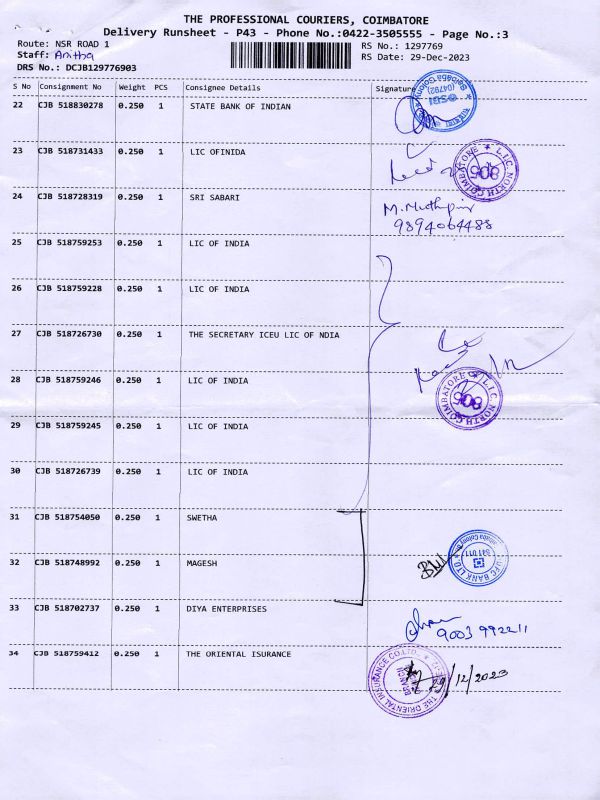 THE PROFESSIONAL COURIERS, COIMBATORE
Delivery Runsheet - P43 - Phone No.:0422-3505555 - Page No.:3
Route: NSR ROAD 1
RS No.: 1297769
Staff: Anitha
RS Date: 29-Dec-2023
DRS No.: DCJB129776903
S No Consignment No Weight PCS Consignee Details Signature
22 CJB 518830278 0.250 1 STATE BANK OF INDIAN
23 CJB 518731433 0.250 1 LIC OFINIDA
L.I.C. NORTH COIMBATORE 805
24 CJB 518728319 0.250 1 SRI SABARI
9894064488
25 CJB 518759253 0.250 1 LIC OF INDIA
26 CJB 518759228 0.250 1 LIC OF INDIA
27 CJB 518726730 0.250 1 THE SECRETARY ICEU LIC OF NDIA
28 CJB 518759246 0.250 1 LIC OF INDIA
L.I.C. NORTH COIMBATORE 805
29 CJB 518759245 0.250 1 LIC OF INDIA
30 CJB 518726739 0.250 1 LIC OF INDIA
31 CJB 518754050 0.250 1 SWETHA
32 CJB 518748992 0.250 1 MAGESH
33 CJB 518702737 0.250 1 DIYA ENTERPRISES
9003 992211
34 CJB 518759412 0.250 1 THE ORIENTAL ISURANCE
THE ORIENTAL INSURANCE CO.LTD.
29/12/2023